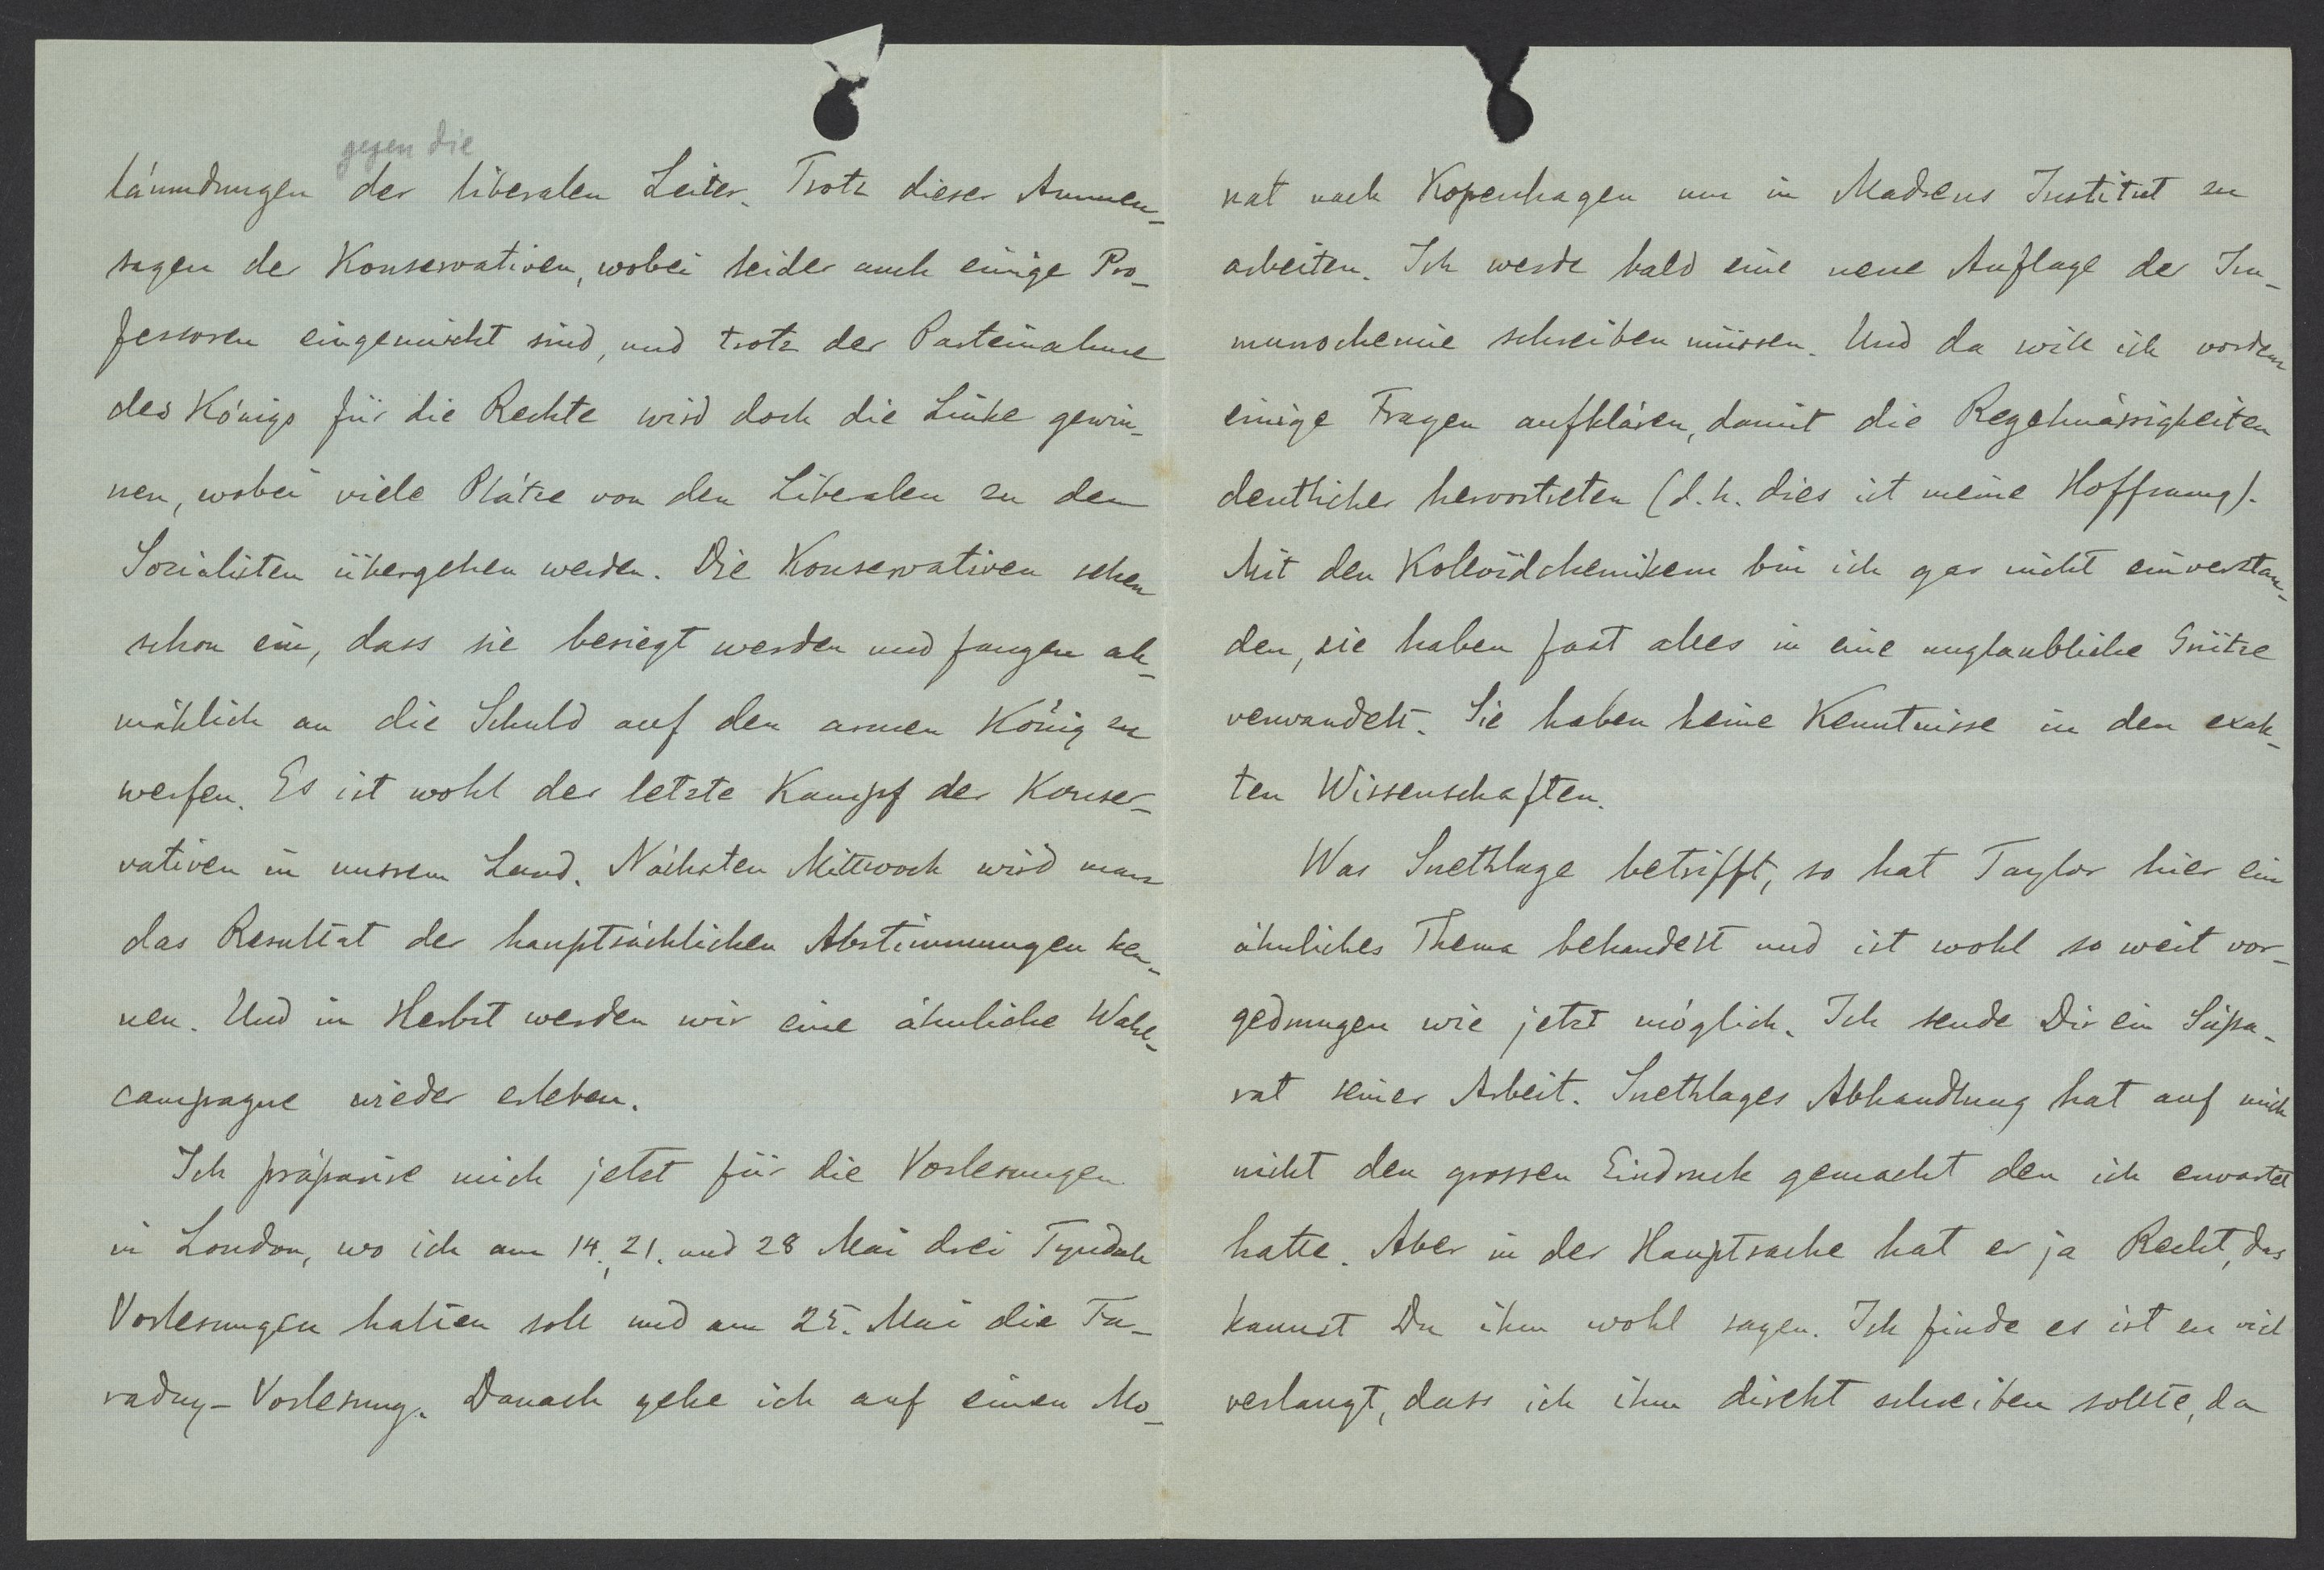 gegen die
läumdungen der liberalen Leiter. Trotz dieser Ammen-
sagen der Konservativen, wobei leider auch einige Pro-
fessoren eingemischt sind, und trotz der Parteinahme
des Königs für die Rechte wird doch die Linke gewin-
nen, wobei viele Plätze von den Liberalen zu den
Sozialisten übergehen werden. Die Konservativen sehen
schon ein, dass sie besiegt werden und fangen all-
mählich an die Schuld auf den armen König zu
werfen. Es ist wohl der letzte Kampf der Konser-
vativen in unsrem Land. Nächsten Mittwoch wird man
das Resultat der hauptsächlichen Abstimmungen ken-
nen. Und in Herbst werden wir eine ähnliche Wahl-
campagne wieder erleben.
Ich präparire mich jetzt für die Vorlesungen
in London, wo ich am 14., 21. und 28 Mai drei Tyndall
Vorlesungen halten soll und am 25. Mai die Fa-
raday-Vorlesung. Danach gehe ich auf einen Mo-
nat nach Kopenhagen um in Madsens Institut zu
arbeiten. Ich werde bald eine neue Auflage der Im-
munochemie schreiben müssen. Und da will ich vordem
einige Fragen aufklären, damit die Regelmässigkeiten
deutlicher hervortreten (d.h. dies ist meine Hoffnung).
Mit den Kolloidchemikern bin ich gar nicht einverstan-
den, sie haben fast alles in eine unglaubliche Grütze
verwandelt. Sie haben keine Kenntnisse in den exak-
ten Wissenschaften.
Was Snethlage betrifft, so hat Taylor hier ein
ähnliches Thema behandelt und ist wohl so weit vor-
gedrungen wie jetzt möglich. Ich sende Dir ein Sepa-
rat seiner Arbeit. Snethlages Abhandlung hat auf mich
nicht den grossen Eindruck gemacht den ich erwartet
hatte. Aber in der Hauptsache hat er ja Recht, das
kannst Du ihm wohl sagen. Ich finde es ist zu viel
verlangt, dass ich ihm direkt schreiben sollte, da